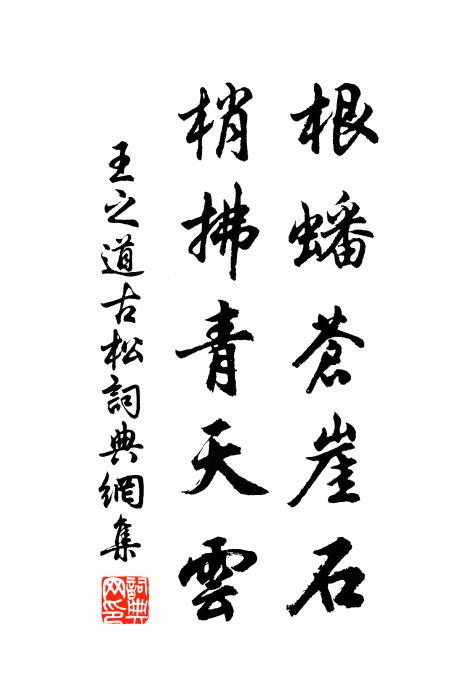 根蟠蒼崖石
梢拂青天雲
王之道古松詞典網集
詞典網印